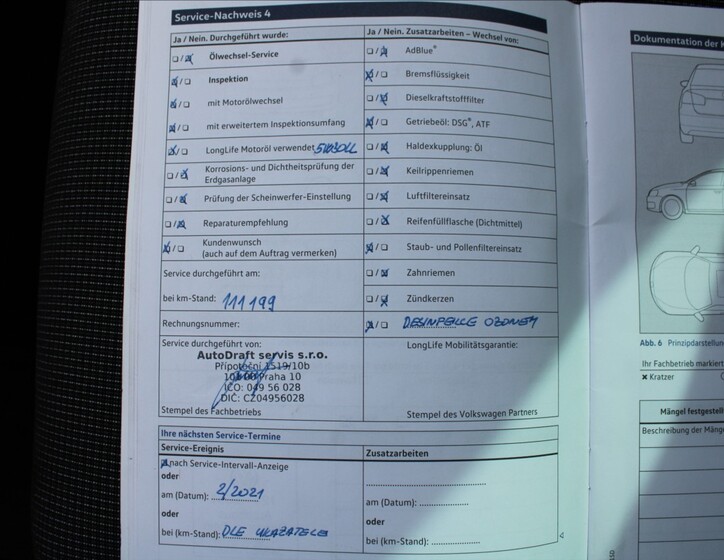 Service-Nachweis 4
Ja / Nein. Durchgeführt wurde:
Ölwechsel-Service
Inspektion
mit Motorölwechsel
mit erweitertem Inspektionsumfang
LongLife Motoröl verwendet
Korrosions- und Dichtheitsprüfung der
Erdgasanlage
Prüfung der Scheinwerfer-Einstellung
Reparaturempfehlung
Kundenwunsch
(auch auf dem Auftrag vermerken)
Service durchgeführt am:
bei km-Stand: 111 199
Rechnungsnummer:
Service durchgeführt von:
AutoDraft servis s.r.o.
Přípotoční 1519/10b
Praha 10
IČO: 049 56 028
DIČ: CZ04956028
Stempel des Fachbetriebs
Ja / Nein. Zusatzarbeiten – Wechsel von:
AdBlue®
Bremsflüssigkeit
Dieselkraftstofffilter
Getriebeöl: DSG®, ATF
Haldexkupplung: Öl
Keilrippenriemen
Luftfiltereinsatz
Reifenfüllflasche (Dichtmittel)
Staub- und Pollenfiltereinsatz
Zahnriemen
Zündkerzen
OZONEM
LongLife Mobilitätsgarantie:
Stempel des Volkswagen Partners
Ihre nächsten Service-Termine
Service-Ereignis
nach Service-Intervall-Anzeige
oder
am (Datum): 2/2021
oder
bei (km-Stand): DLE UKAZATELE
Zusatzarbeiten
am (Datum):
oder
bei (km-Stand):
Dokumentation der K
Abb. 6 Prinzipdarstellun
Ihr Fachbetrieb markiert
x Kratzer
Mängel festgestell
Beschreibung der Mäng